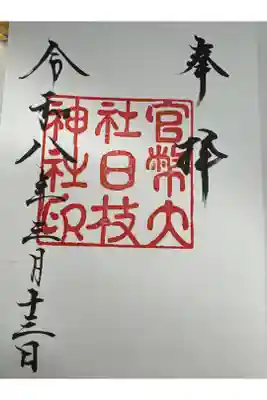 奉拝
官幣大
社日枝
神社印
令和八年三月十三日